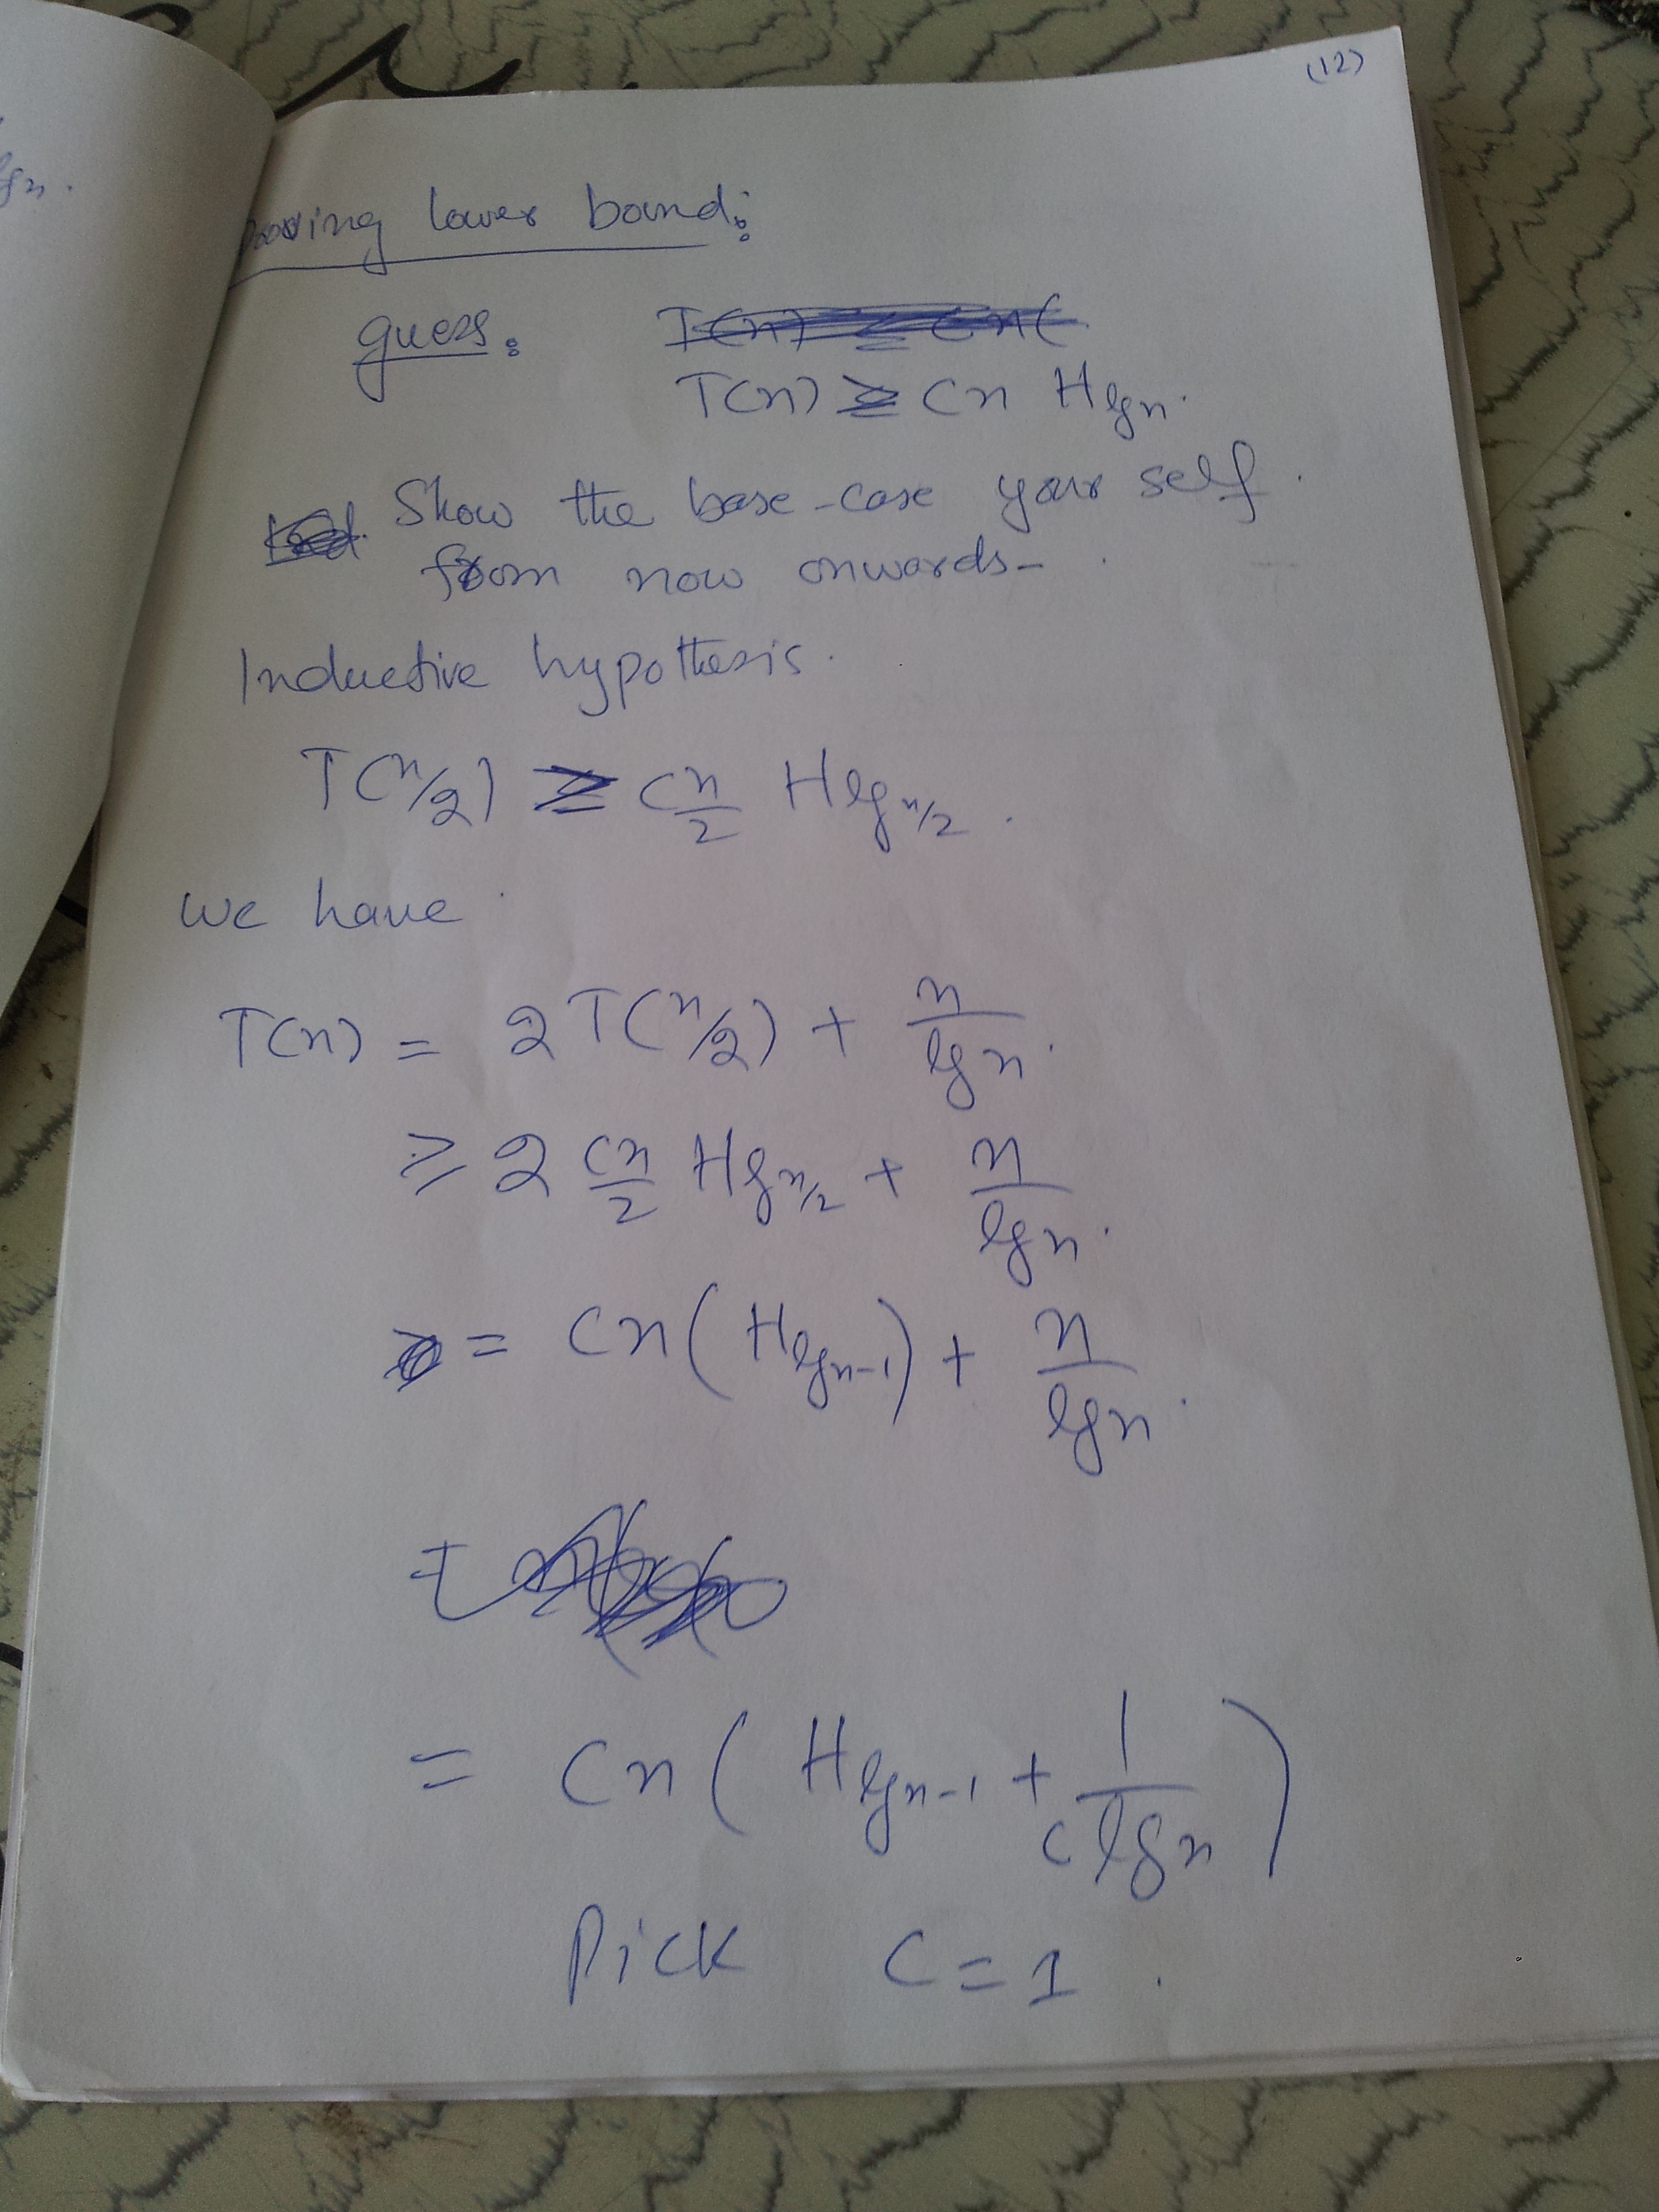 (12)
proving lower bound:
guess: T(n) ≥ cn H_{lg n}.
Show the base-case your self.
from now onwards-.
Inductive hypothesis.
T(n/2) ≥ c n/2 H_{lg n/2}.
we have.
T(n) = 2T(n/2) + n/lg n.
≥ 2 cn/2 H_{lg n/2} + n/lg n.
= cn(H_{lg n-1}) + n/lg n.
= cn(H_{lg n-1} + 1/(c lg n))
Pick C=1.